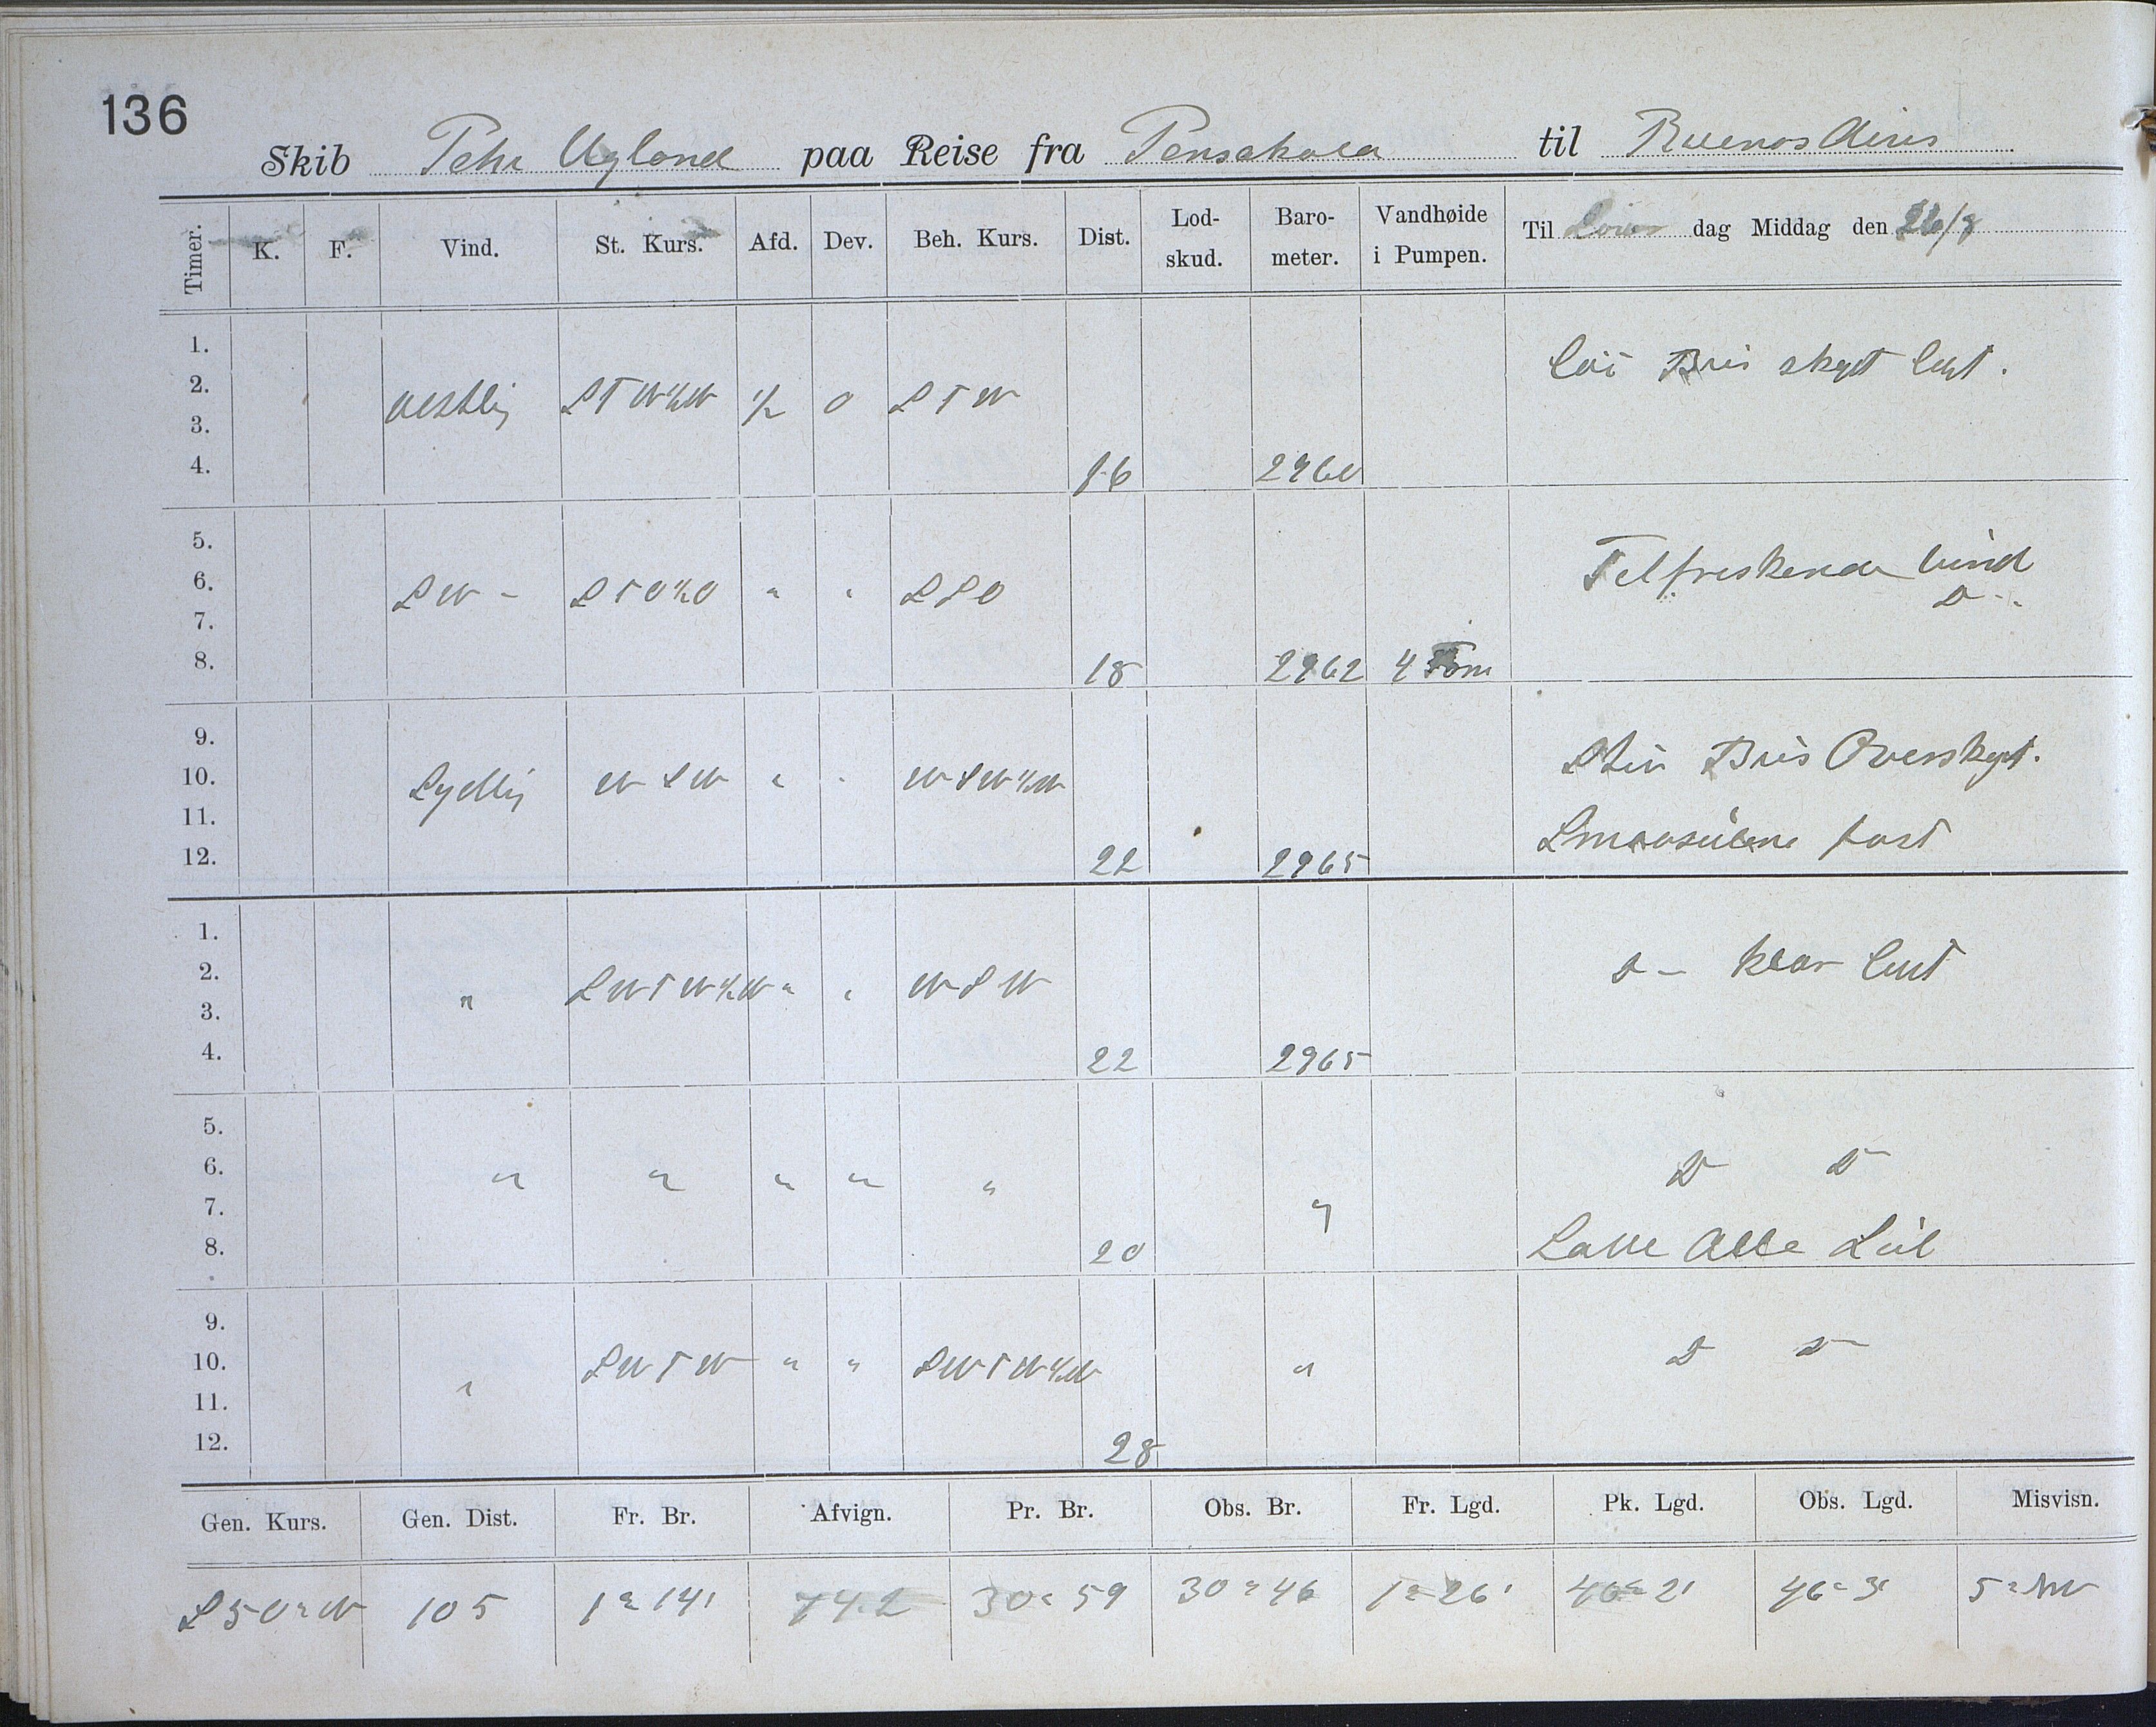 136
Skib Tehr Ugland paa Reise fra Pensakola til Buenos Aires
Timer. K. F. Vind. St. Kurs. Afd. Dev. Beh. Kurs. Dist. Lod-skud. Baro-meter. Vandhøide i Pumpen. Til Löver dag Middag den 26/8
1. Löi Bris skyet luft.
2. vestlig STW½W ½ 0 STW
3.
4. 16 2960
5. Telfriskende vind
6. SW - STO½O " " SSO D--
7.
8. 18 2962 4 Tom
9. Stiv Bris Overskyt.
10. Sydlig WSW " " WSW½W
11. Smaaseilene fast
12. 22 2965
1.
2. " SWTW½W " " WSW D- klar luft
3.
4. 22 2965
5.
6. " " " " " D D
7. "
8. 20 Satte Alle Seil
9.
10. " SWTW " " SWTW½W " D D
11.
12. 28
Gen. Kurs. Gen. Dist. Fr. Br. Afvign. Pr. Br. Obs. Br. Fr. Lgd. Pk. Lgd. Obs. Lgd. Misvisn.
S50°W 105 1°14' 74.2 30°59 30°46 1°26' 46°2' 46°3' 5°NW